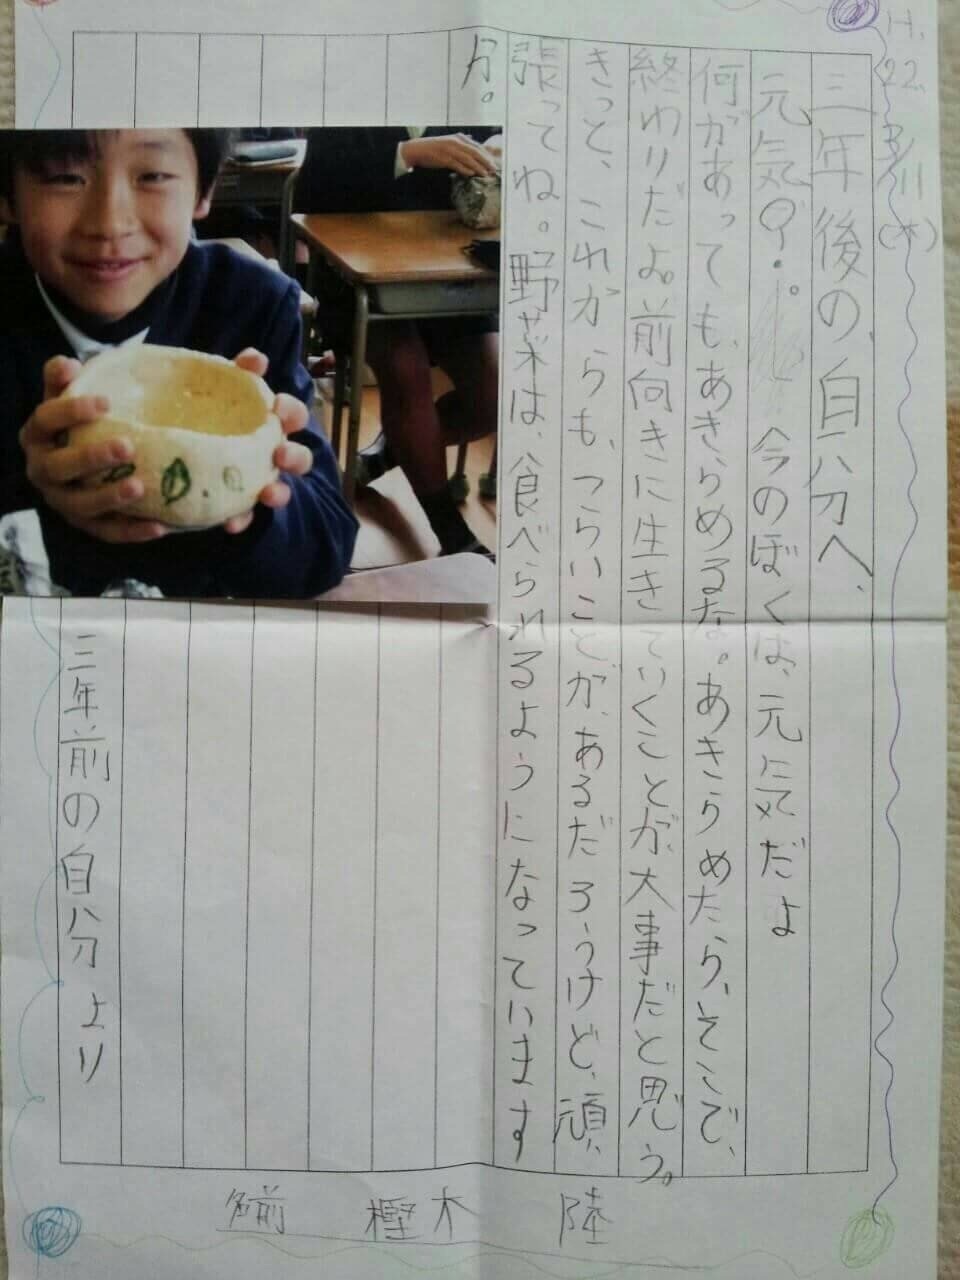 H.22.3/11(木)
三年後の、自分へ、
元気?。今のぼくは、元気だよ
何があっても、あきらめるな。あきらめたら、そこで、
終わりだよ。前向きに生きていくことが、大事だと思う。
きっと、これからも、つらいことが、あるだろうけど、頑
張ってね。野菜は、食べられるようになっています
か。
三年前の自分より
名前 樫木 陸